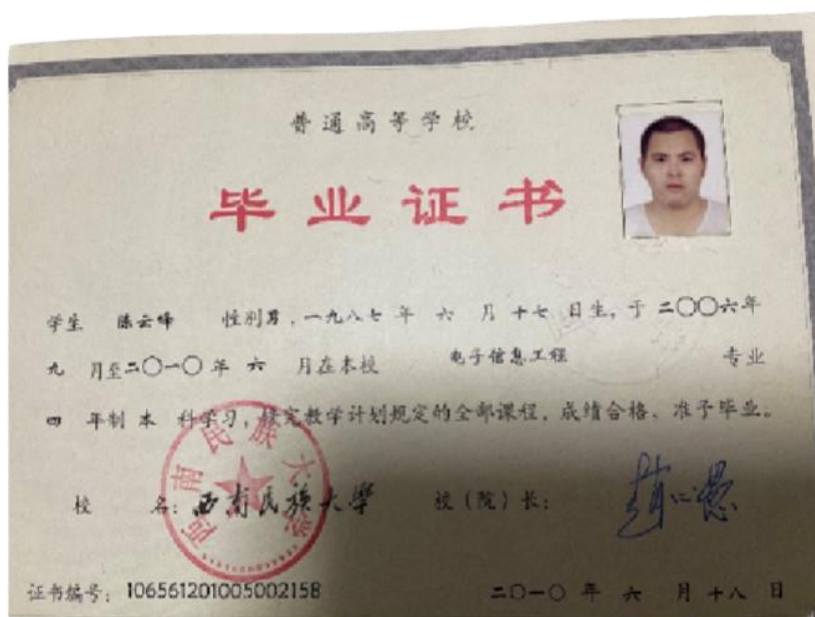 普通高等学校
毕业证书
学生 陈云峰 性别男,一九八七年 六 月 十七 日生,于 二〇〇六年
九 月至二〇一〇年 六 月在本校 电子信息工程 专业
四 年制 本 科学习,修完教学计划规定的全部课程,成绩合格、准予毕业。
校 名:西南民族大學 校(院)长:
西南民族大学
证书编号:106561201005002158 二〇一〇 年 六 月 十八 日